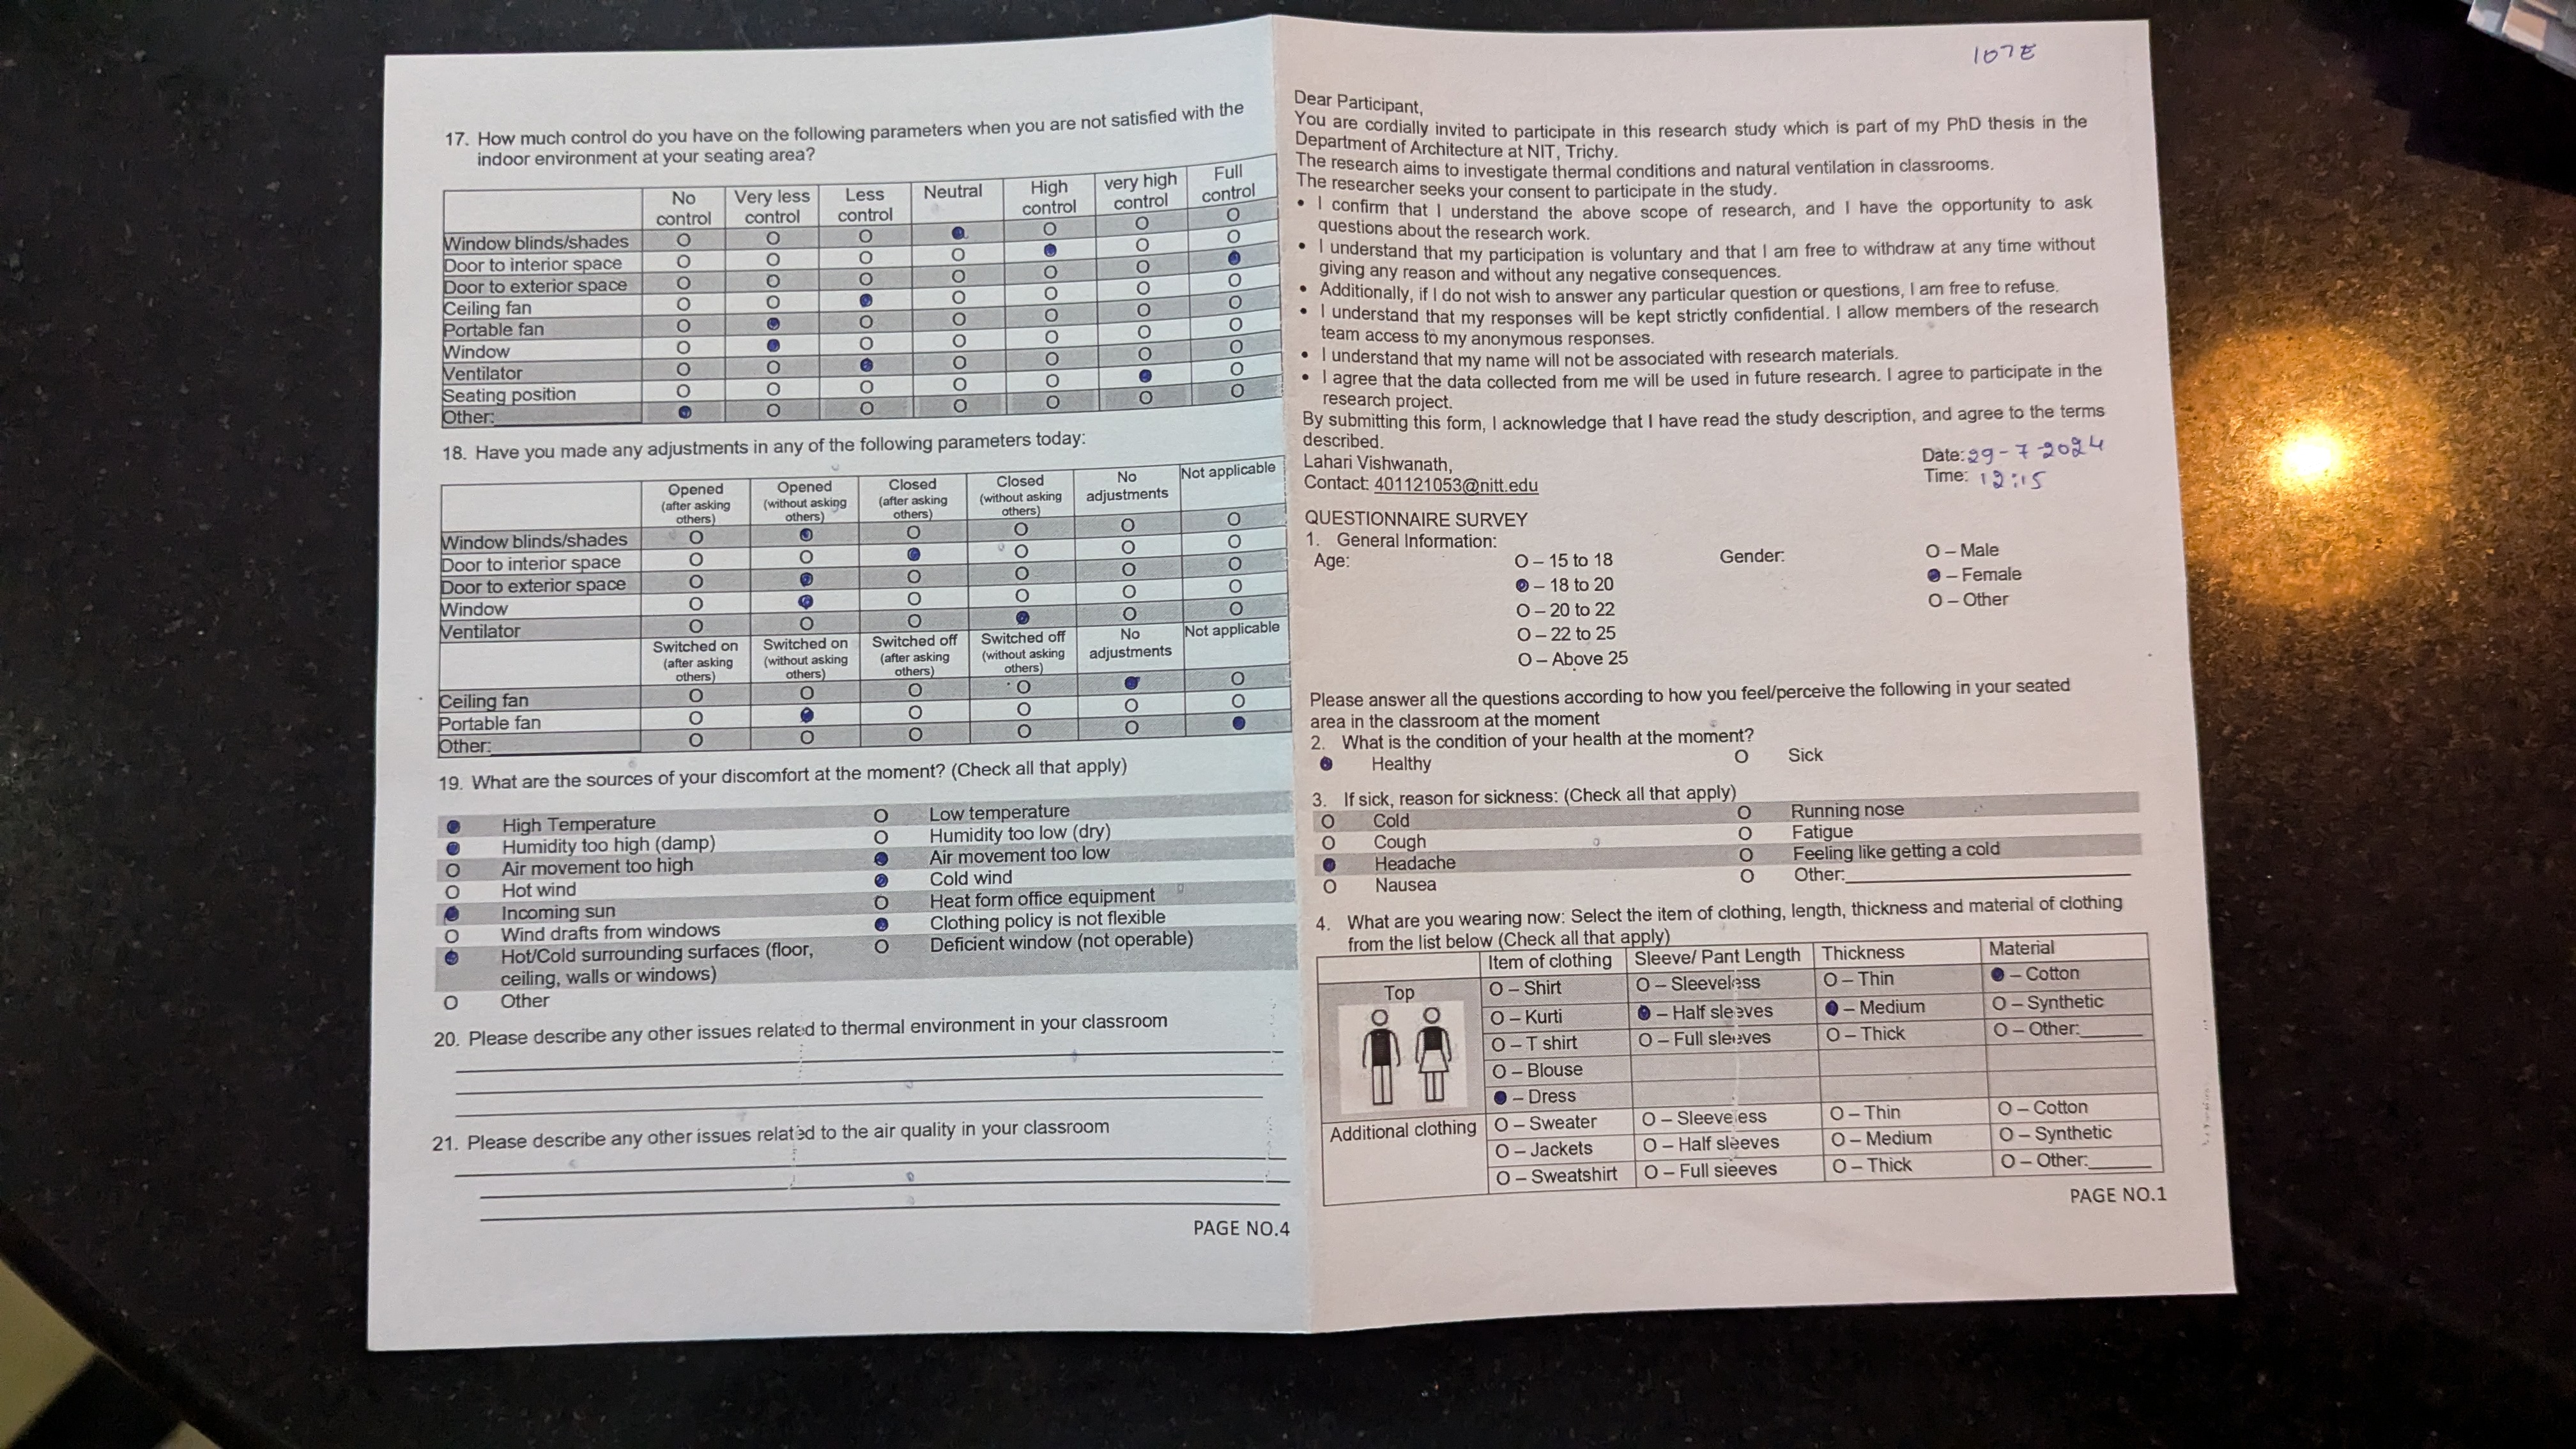 17. How much control do you have on the following parameters when you are not satisfied with the
indoor environment at your seating area?
No control Very less control Less control Neutral High control very high control Full control
Window blinds/shades O O O O O O
Door to interior space O O O O O O
Door to exterior space O O O O O O
Ceiling fan O O O O O O
Portable fan O O O O O O
Window O O O O O O
Ventilator O O O O O O
Seating position O O O O O O
Other: O O O O O O
18. Have you made any adjustments in any of the following parameters today:
Opened (after asking others) Opened (without asking others) Closed (after asking others) Closed (without asking others) No adjustments Not applicable
Window blinds/shades O O O O O
Door to interior space O O O O O
Door to exterior space O O O O O
Window O O O O O
Ventilator O O O O O
Switched on (after asking others) Switched on (without asking others) Switched off (after asking others) Switched off (without asking others) No adjustments Not applicable
Ceiling fan O O O O O
Portable fan O O O O O
Other: O O O O O
19. What are the sources of your discomfort at the moment? (Check all that apply)
High Temperature O Low temperature
Humidity too high (damp) O Humidity too low (dry)
O Air movement too high Air movement too low
O Hot wind Cold wind
Incoming sun O Heat form office equipment
O Wind drafts from windows Clothing policy is not flexible
Hot/Cold surrounding surfaces (floor, O Deficient window (not operable)
ceiling, walls or windows)
O Other
20. Please describe any other issues related to thermal environment in your classroom
21. Please describe any other issues related to the air quality in your classroom
PAGE NO.4
107E
Dear Participant,
You are cordially invited to participate in this research study which is part of my PhD thesis in the
Department of Architecture at NIT, Trichy.
The research aims to investigate thermal conditions and natural ventilation in classrooms.
The researcher seeks your consent to participate in the study.
• I confirm that I understand the above scope of research, and I have the opportunity to ask
questions about the research work.
• I understand that my participation is voluntary and that I am free to withdraw at any time without
giving any reason and without any negative consequences.
• Additionally, if I do not wish to answer any particular question or questions, I am free to refuse.
• I understand that my responses will be kept strictly confidential. I allow members of the research
team access to my anonymous responses.
• I understand that my name will not be associated with research materials.
• I agree that the data collected from me will be used in future research. I agree to participate in the
research project.
By submitting this form, I acknowledge that I have read the study description, and agree to the terms
described.
Lahari Vishwanath,
Contact: 401121053@nitt.edu
Date: 29-7-2024
Time: 12:15
QUESTIONNAIRE SURVEY
1. General Information:
Age: O – 15 to 18 Gender: O – Male
– 18 to 20 – Female
O – 20 to 22 O – Other
O – 22 to 25
O – Above 25
Please answer all the questions according to how you feel/perceive the following in your seated
area in the classroom at the moment
2. What is the condition of your health at the moment?
Healthy O Sick
3. If sick, reason for sickness: (Check all that apply)
O Cold O Running nose
O Cough O Fatigue
Headache O Feeling like getting a cold
O Nausea O Other:
4. What are you wearing now: Select the item of clothing, length, thickness and material of clothing
from the list below (Check all that apply)
Item of clothing Sleeve/ Pant Length Thickness Material
Top O – Shirt O – Sleeveless O – Thin – Cotton
O – Kurti – Half sleeves – Medium O – Synthetic
O – T shirt O – Full sleeves O – Thick O – Other:
O – Blouse
– Dress
Additional clothing O – Sweater O – Sleeveless O – Thin O – Cotton
O – Jackets O – Half sleeves O – Medium O – Synthetic
O – Sweatshirt O – Full sleeves O – Thick O – Other:
PAGE NO.1